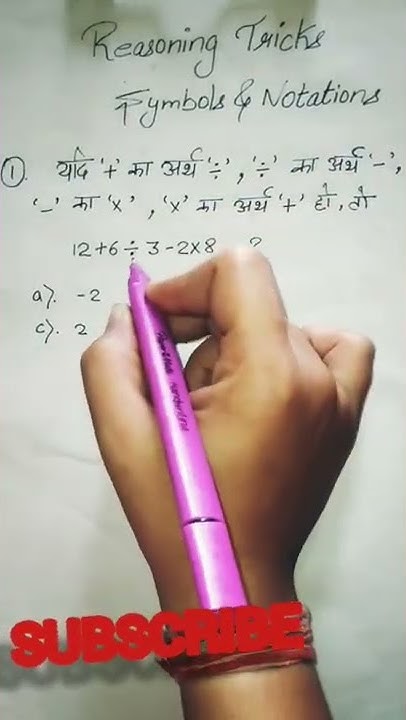 Reasoning Tricks
Symbols & Notations
①. यदि '+' का अर्थ '÷', '÷' का अर्थ '-',
'-' का 'x', 'x' का अर्थ '+' हो, तो
12+6÷3-2x8 ?
a). -2
c). 2
SUBSCRIBE